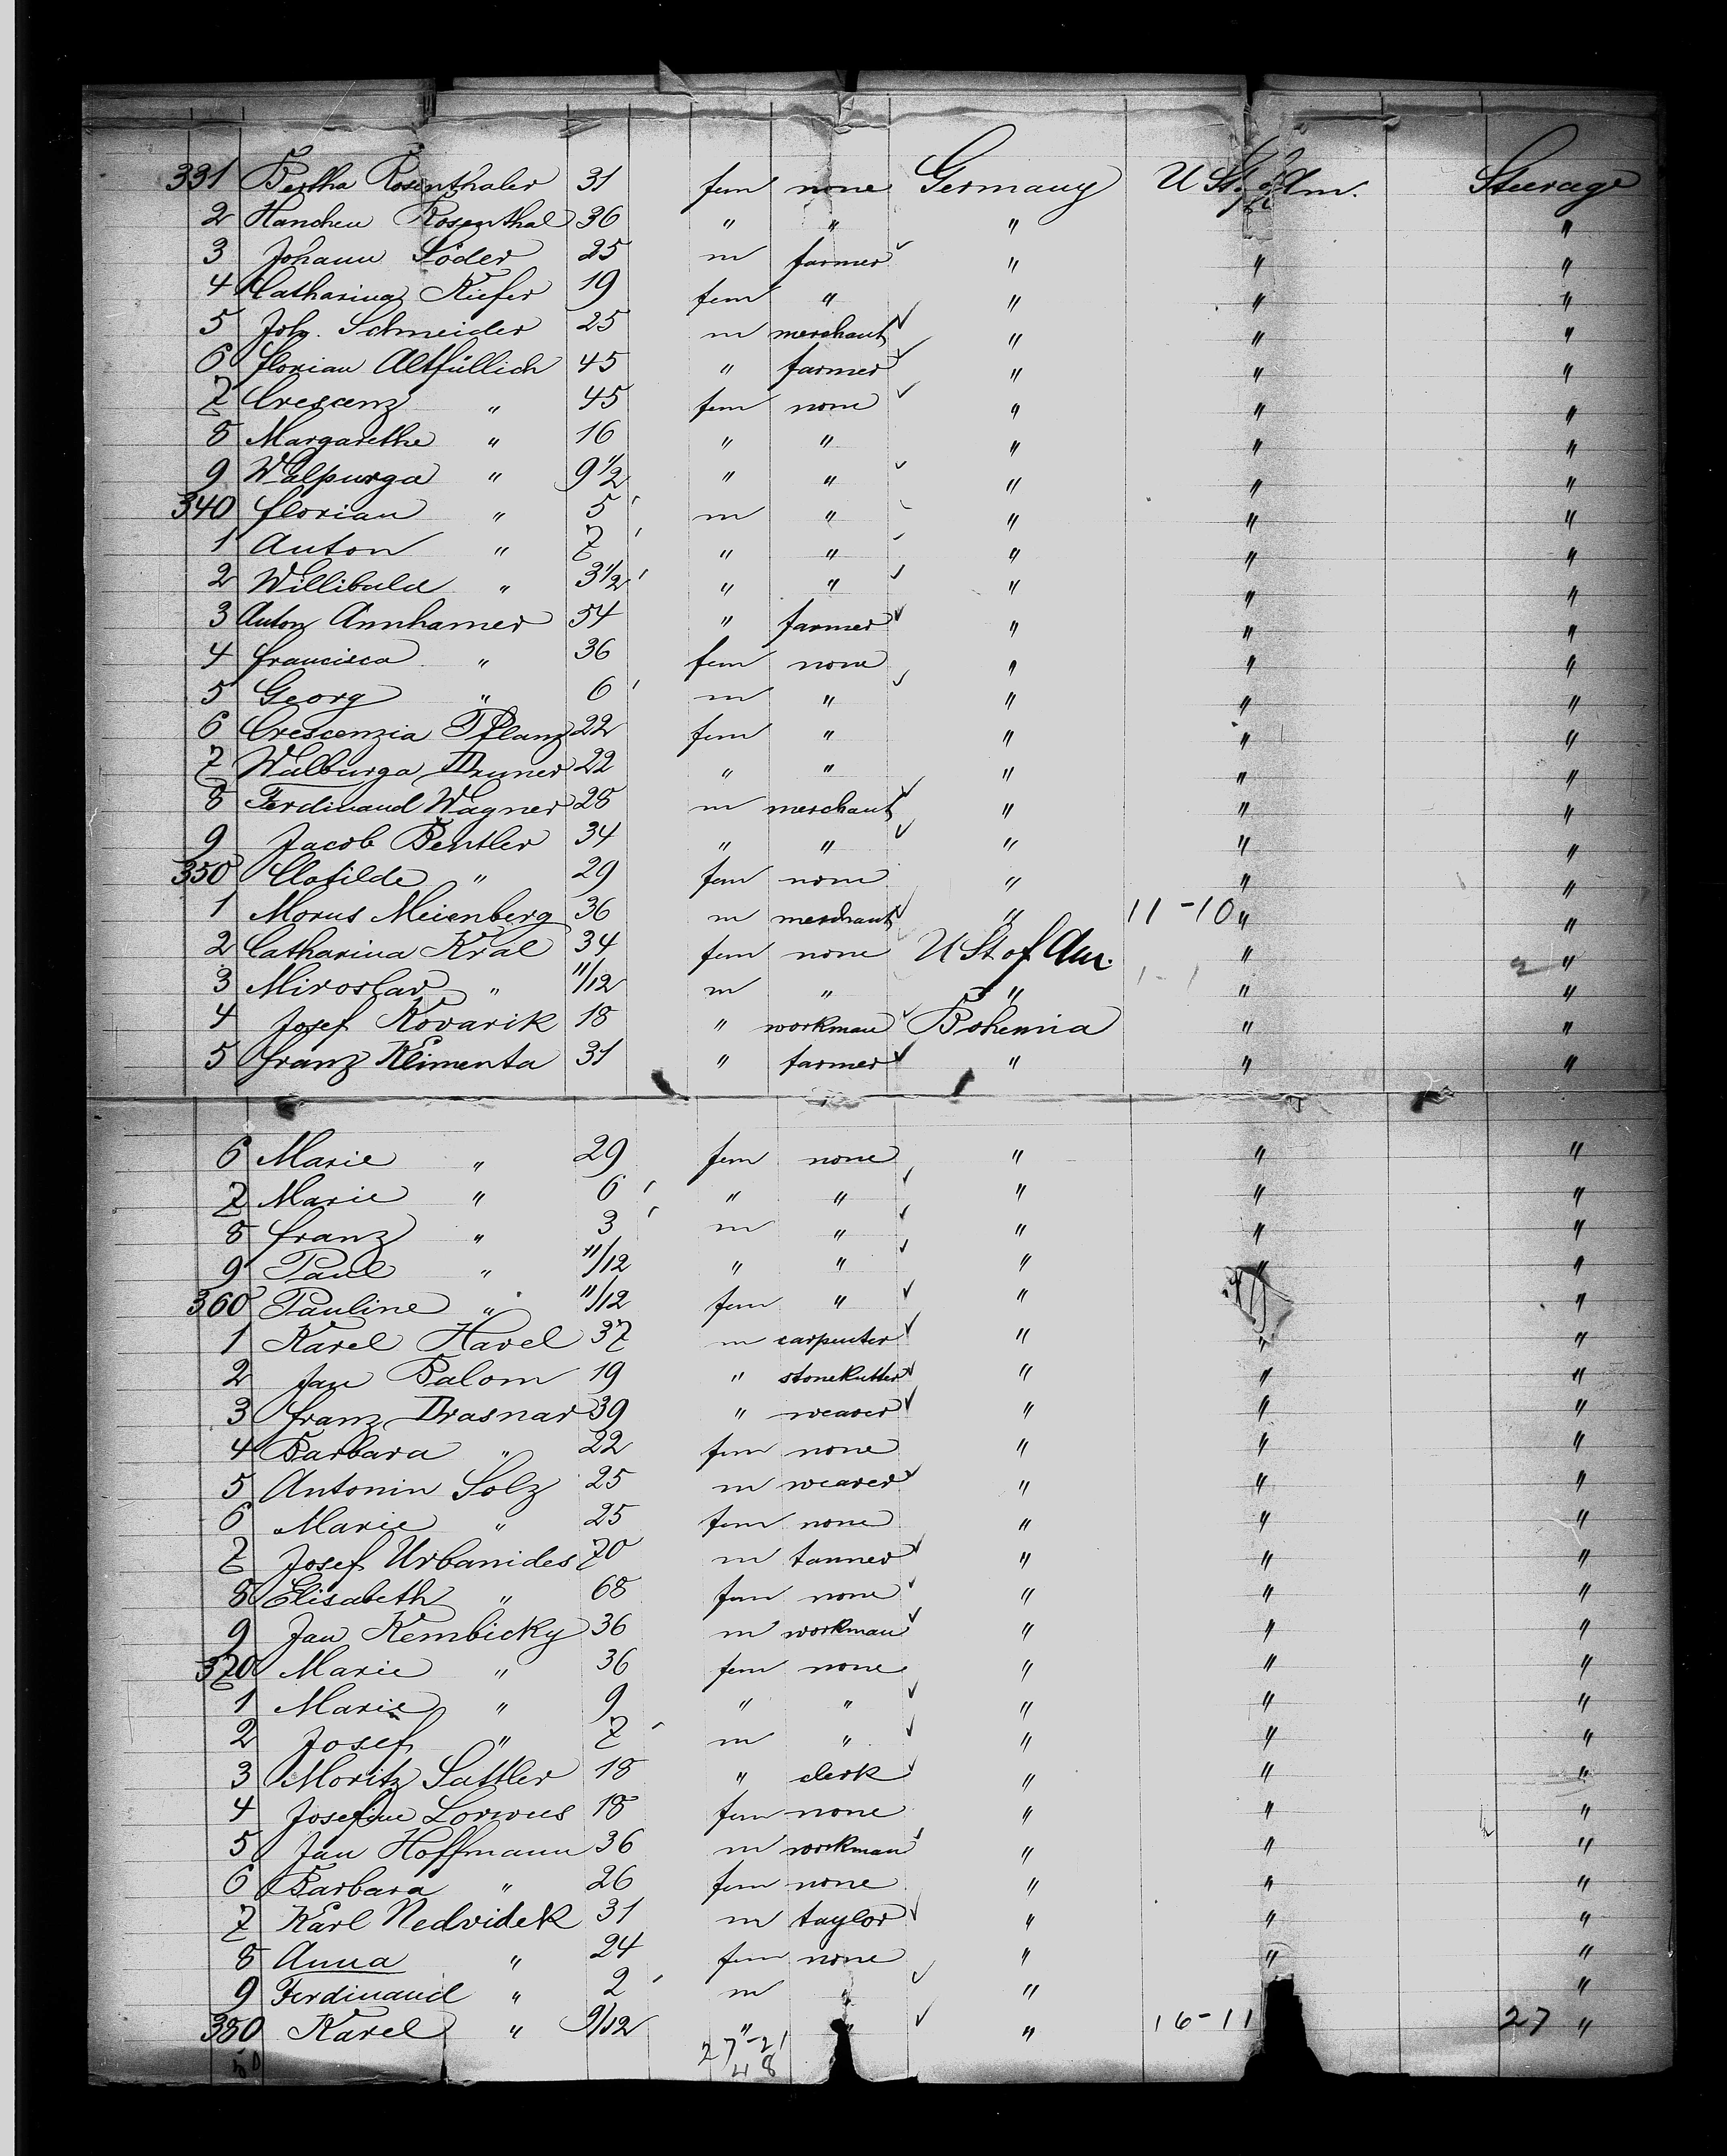 331 Bertha Rosenthaler 31 fem none Germany U St. of Am. Steerage
2 Hanchen Rosenthal 36 " " " "
3 Johann Söder 25 m farmer " " "
4 Catharina Kiefer 19 fem " " " "
5 Joh. Schneider 25 m merchant " " "
6 Florian Altfüllich 45 " farmer " " "
7 Crescenz " 45 fem none " " "
8 Margarethe " 16 " " " " "
9 Walpurga " 9 1/2 " " " " "
340 Florian " 5 m " " " "
1 Anton " 7 " " " " "
2 Willibald " 3 1/2 " " " " "
3 Anton Annhamer 54 " farmer " " "
4 Francisca " 36 fem none " " "
5 Georg " 6 m " " " "
6 Crescenzia Pflanz 22 fem " " " "
7 Walburga Druner 22 " " " " "
8 Ferdinand Wagner 28 m merchant " " "
9 Jacob Bentler 34 " " " " "
350 Clotilde " 29 fem none " " "
1 Morus Meienberg 36 m merchant " 11-10 " "
2 Catharina Kral 34 fem none U St of Am. " "
3 Miroslav " 11/12 m " " " "
4 Josef Kovarik 18 " workman Bohemia " "
5 Franz Klimenta 31 " farmer " " "
6 Marie " 29 fem none " " "
7 Marie " 6 " " " " "
8 Franz " 3 m " " " "
9 Paul " 11/12 " " " " "
360 Pauline " 11/12 fem " " "
1 Karel Havel 37 m carpenter " " "
2 Jan Balom 19 " stonekutter " " "
3 Franz Drasnar 39 " weaver " " "
4 Barbara " 22 fem none " " "
5 Antonin Solz 25 m weaver " " "
6 Marie " 25 fem none " " "
7 Josef Urbanides 70 m tanner " " "
8 Elisabeth " 68 fem none " " "
9 Jan Kembicky 36 m workman " " "
370 Marie " 36 fem none " " "
1 Marie " 9 " " " " "
2 Josef " 7 m " " " "
3 Moritz Sattler 18 " clerk " " "
4 Josefine 18 fem none " " "
5 Jan Hoffmann 36 m workman " " "
6 Barbara " 26 fem none " " "
7 Karl Nedvidek 31 m taylor " " "
8 Anna " 24 fem none " " "
9 Ferdinand " 2 m " " "
380 Karel " 9/12 " " " 16-11 27 "
27-21
48